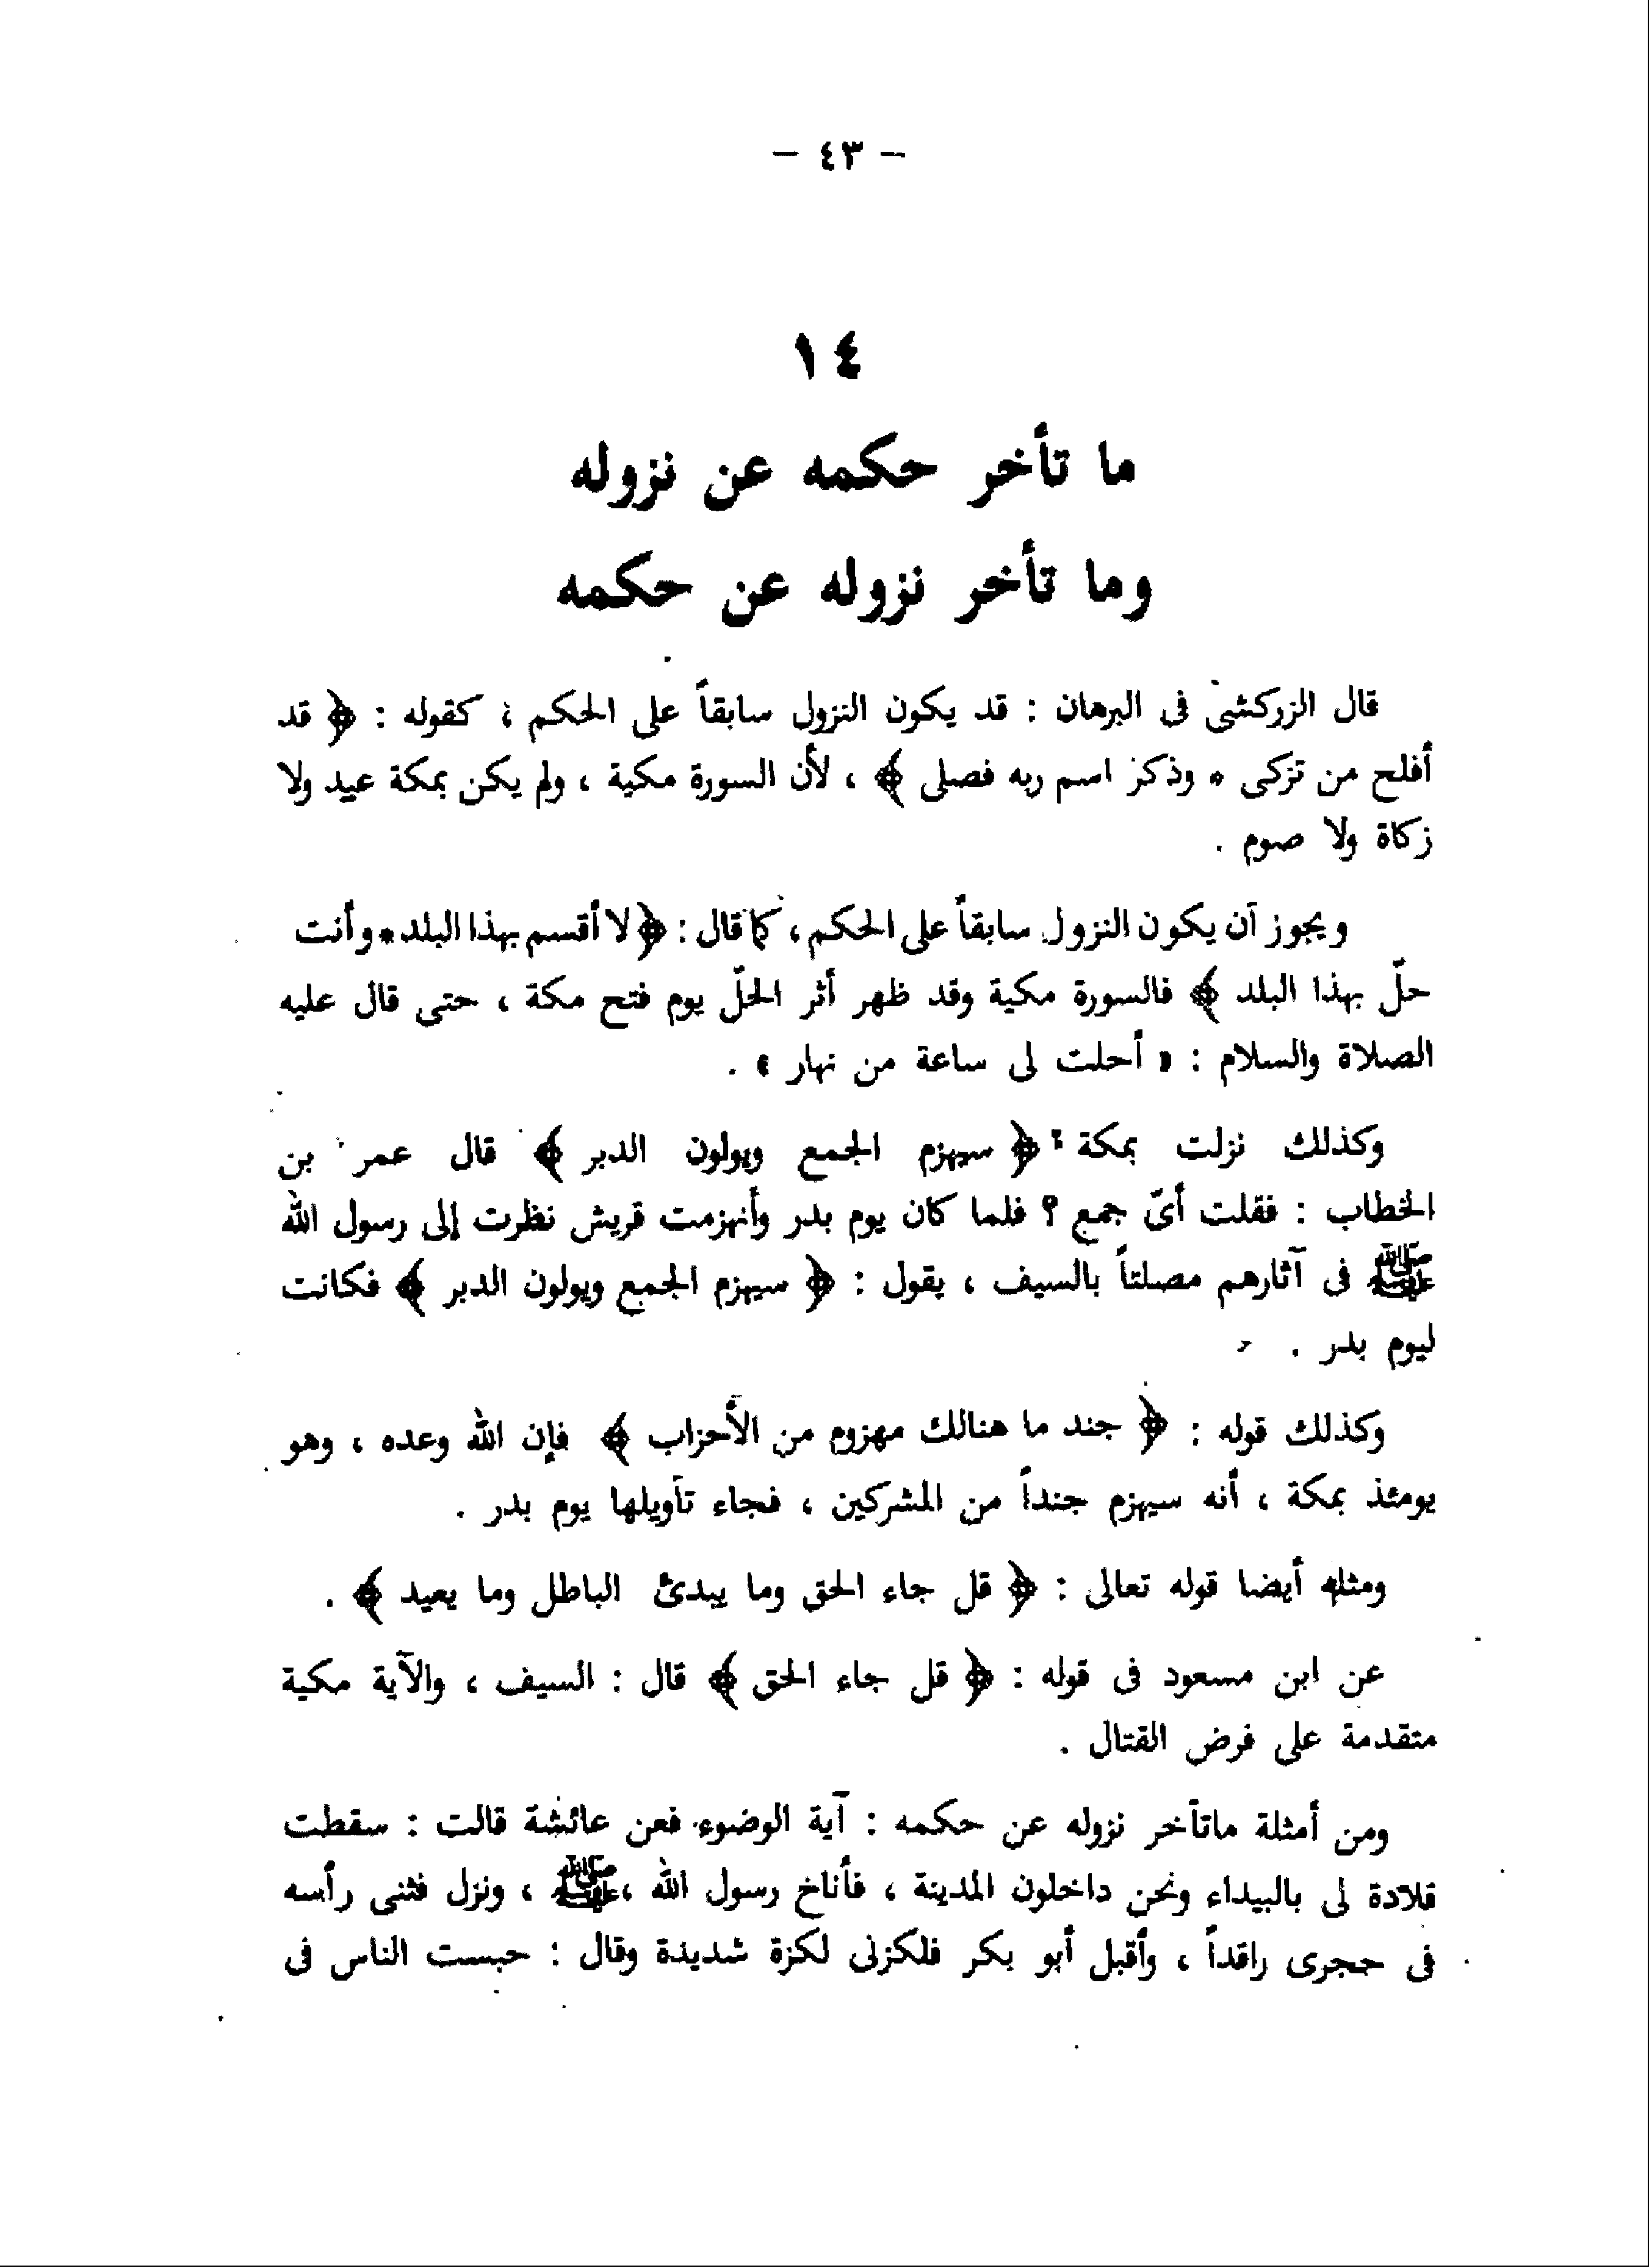 – ٤٣ –
١٤
ما تأخر حكمه عن نزوله
وما تأخر نزوله عن حكمه
قال الزركشى فى البرهان : قد يكون النزول سابقاً على الحكم ، كقوله : ﴿ قد
أفلح من تزكى * وذكر اسم ربه فصلى ﴾ ، لأن السورة مكية ، ولم يكن بمكة عيد ولا
زكاة ولا صوم .
ويجوز أن يكون النزول سابقاً على الحكم ، كما قال : ﴿ لا أقسم بهذا البلد * وأنت
حلّ بهذا البلد ﴾ فالسورة مكية وقد ظهر أثر الحلّ يوم فتح مكة ، حتى قال عليه
الصلاة والسلام : « أحلت لى ساعة من نهار » .
وكذلك نزلت بمكة : ﴿ سيهزم الجمع ويولون الدبر ﴾ قال عمر بن
الخطاب : فقلت أىّ جمع ؟ فلما كان يوم بدر وأنهزمت قريش نظرت إلى رسول الله
ﷺ فى آثارهم مصلتاً بالسيف ، يقول : ﴿ سيهزم الجمع ويولون الدبر ﴾ فكانت
ليوم بدر .
وكذلك قوله : ﴿ جند ما هنالك مهزوم من الأحزاب ﴾ فإن الله وعده ، وهو
يومئذ بمكة ، أنه سيهزم جنداً من المشركين ، فجاء تأويلها يوم بدر .
ومثله أيضا قوله تعالى : ﴿ قل جاء الحق وما يبدئ الباطل وما يعيد ﴾ .
عن ابن مسعود فى قوله : ﴿ قل جاء الحق ﴾ قال : السيف ، والآية مكية
متقدمة على فرض القتال .
ومن أمثلة ماتأخر نزوله عن حكمه : آية الوضوء فعن عائشة قالت : سقطت
قلادة لى بالبيداء ونحن داخلون المدينة ، فأناخ رسول الله ، ﷺ ، ونزل فثنى رأسه
فى حجرى راقداً ، وأقبل أبو بكر فلكزنى لكزة شديدة وقال : حبست الناس فى